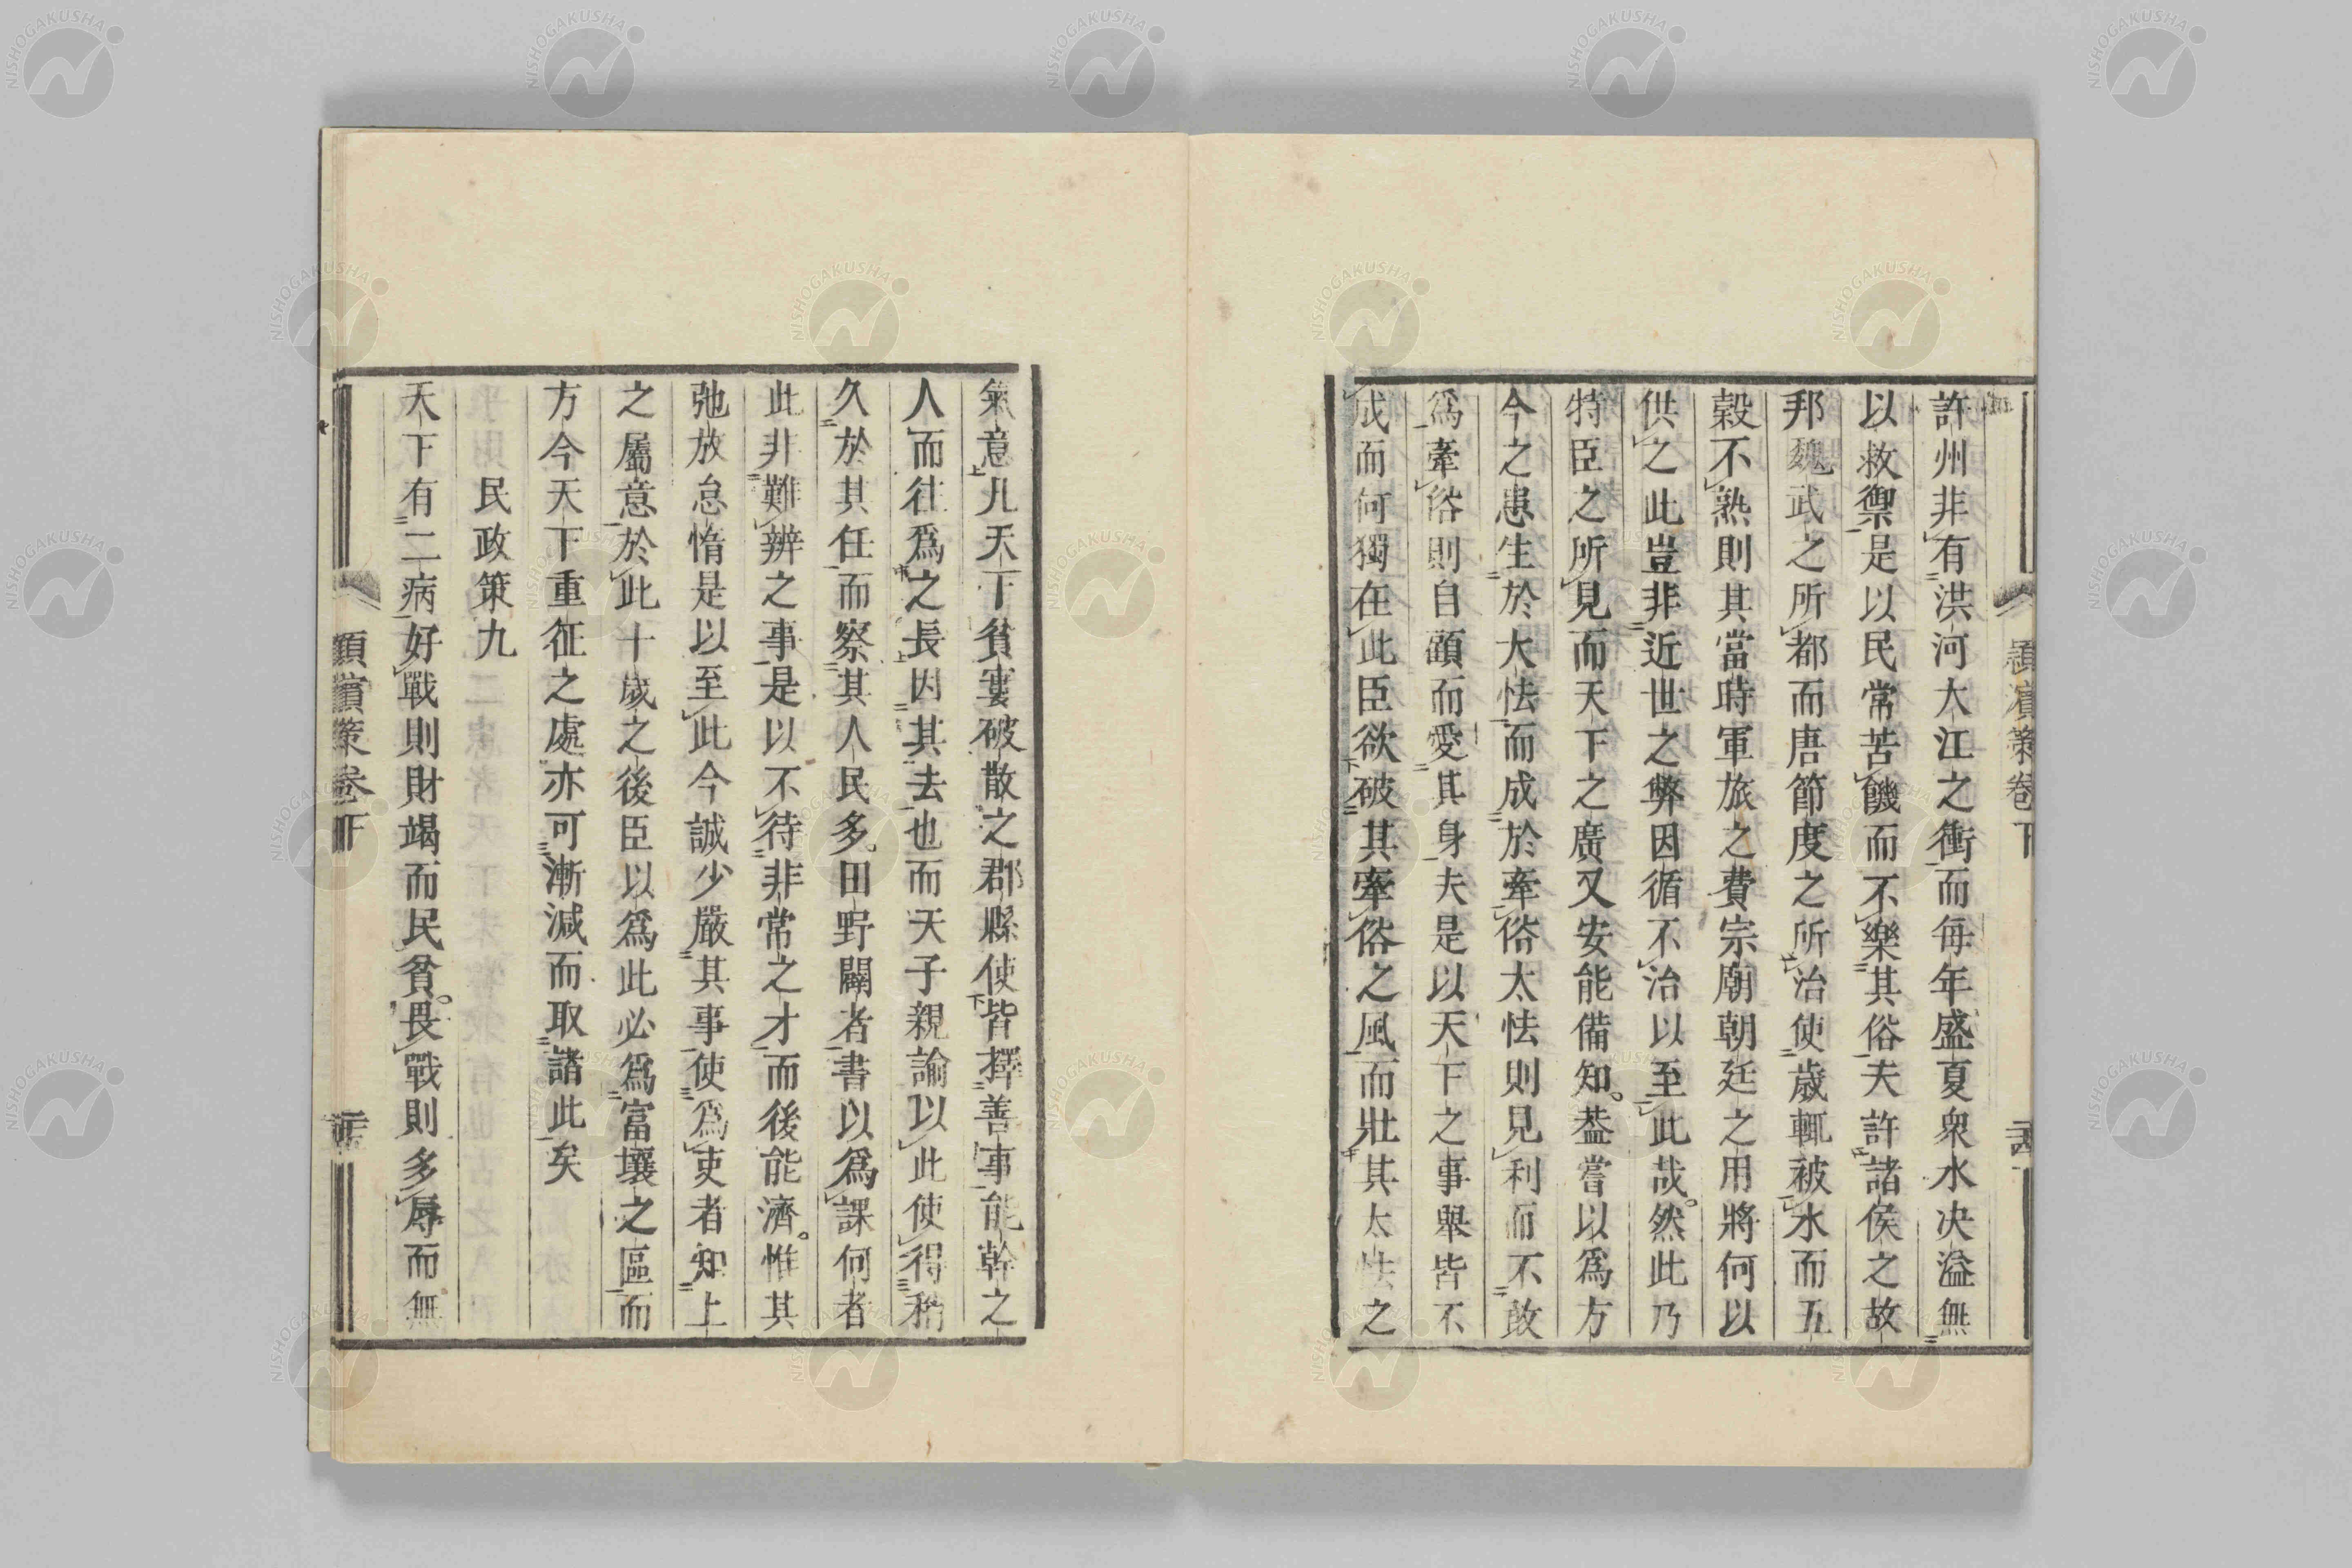 許州非有洪河大江之衝而每年盛夏衆水决溢無
以救禦是以民常苦饑而不樂其俗夫許諸侯之故
邦魏武之所都而唐節度之所治使歳輒被水而五
穀不熟則其當時軍旅之費宗廟朝廷之用將何以
供之此豈非近世之弊因循不治以至此哉然此乃
特臣之所見而天下之廣又安能備知葢嘗以爲方
今之患生於大怯而成於牽俗太怯則見利而不敢
爲牽俗則自顧而愛其身夫是以天下之事舉皆不
成而何獨在此臣欲破其牽俗之風而壯其太怯之
氣意凡天下貧寠破散之郡縣使皆擇善事能幹之
人而徃爲之長因其去也而天子親諭以此使得稍
久於其任而察其人民多田野闢者書以爲課何者
此非難辨之事是以不待非常之才而後能濟惟其
弛放怠惰是以至此今誠少嚴其事使爲吏者知上
之屬意於此十歲之後臣以爲此必爲富壤之區而
方今天下重征之處亦可漸減而取諸此矣
民政策九
天下有二病好戰則財竭而民貧畏戰則多辱而無
潁濱策卷下
潁濱策卷下
NISHOGAKUSHA